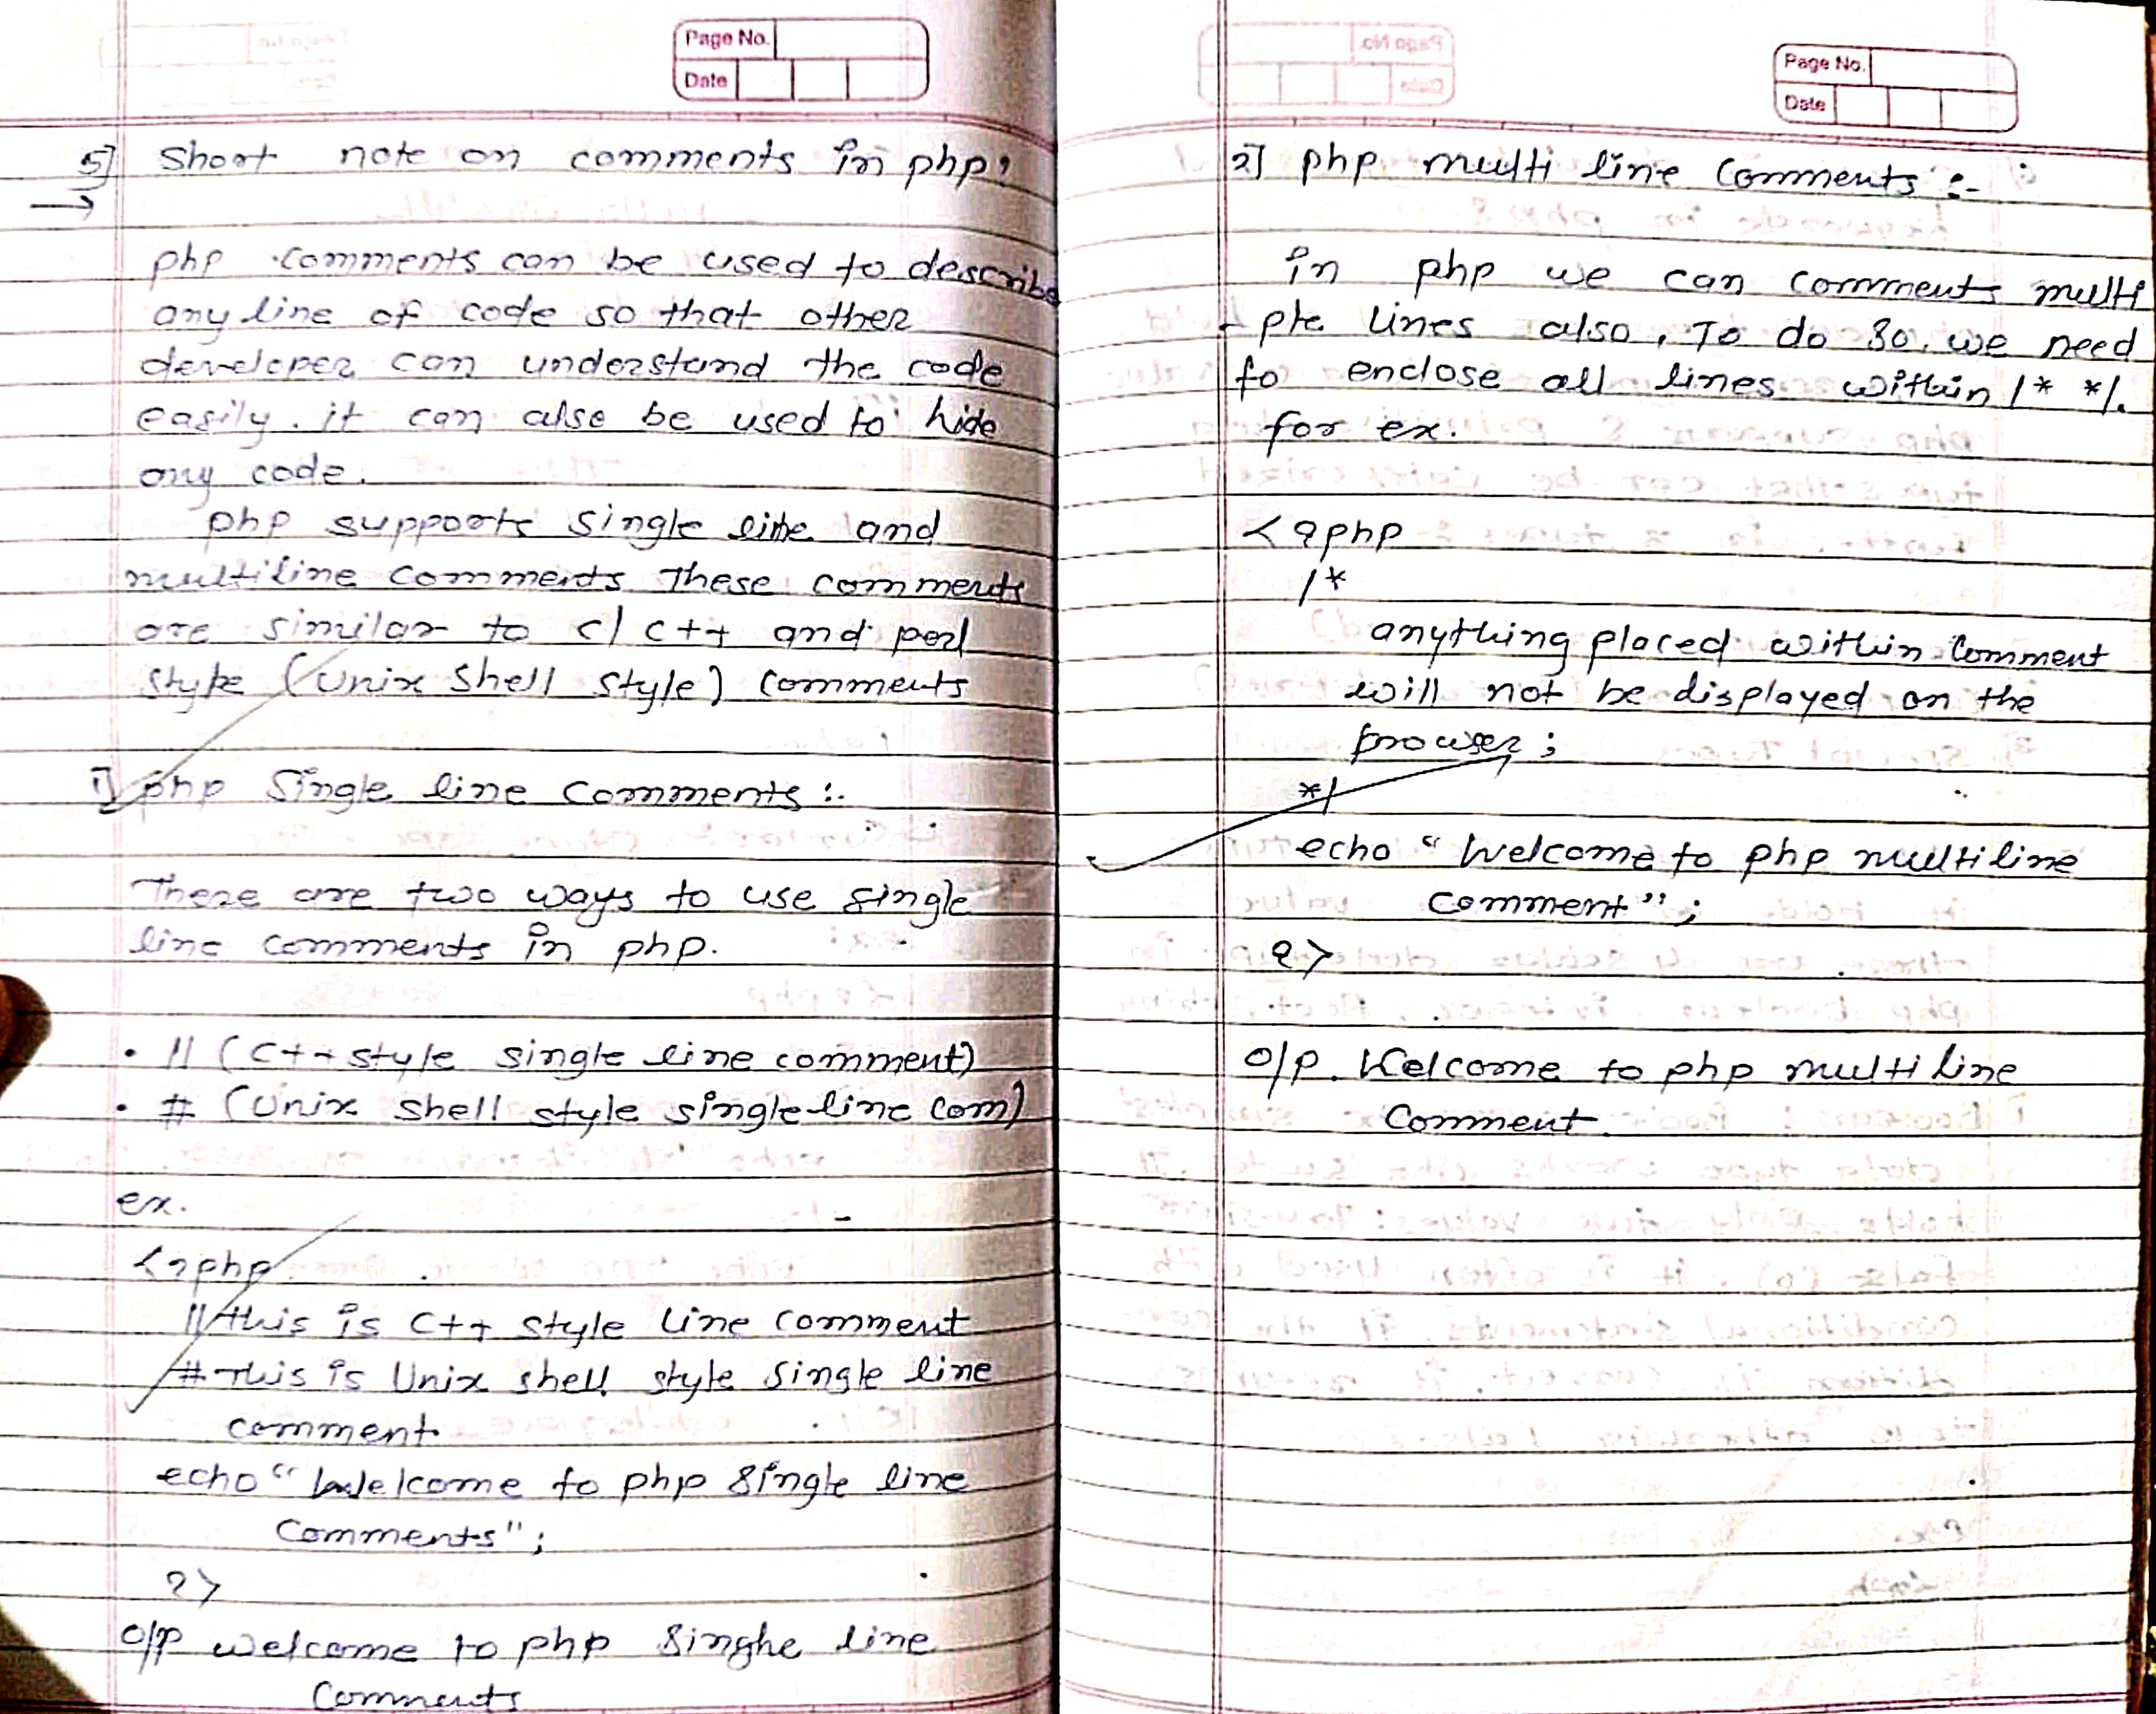 Page No.
Date
5] Short note on comments in php?
→
php comments can be used to describe
any line of code so that other
developer can understand the code
easily. it can also be used to hide
any code.
php supports single line and
multiline comments These comments
are similar to c/ c++ and perl
style (Unix shell style) comments
1] php Single line comments :-
There are two ways to use single
line comments in php.
• // (C++ style single line comment)
• # (Unix shell style single line com)
ex.
<?php
// this is C++ style line comment
# This is Unix shell style single line
comment
echo "Welcome to php single line
Comments";
?>
o/p welcome to php single line
Comments
Page No.
Date
2] php multi line comments :-
in php we can comments multi
- ple lines also. To do so, we need
to enclose all lines within /* */.
for ex.
<?php
/*
anything placed within comment
will not be displayed on the
browser;
*/
echo "Welcome to php multiline
comment";
?>
o/p. Welcome to php multi line
Comment.